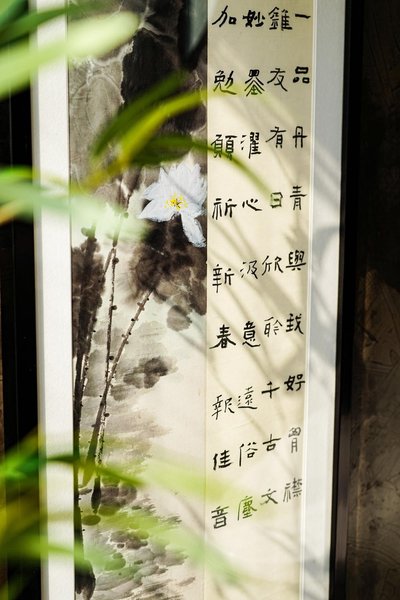 一品丹青與我好胷襟
友有日欣聆千古文
妙墨濯心汲意遠俗塵
加勉願祈新春報佳音